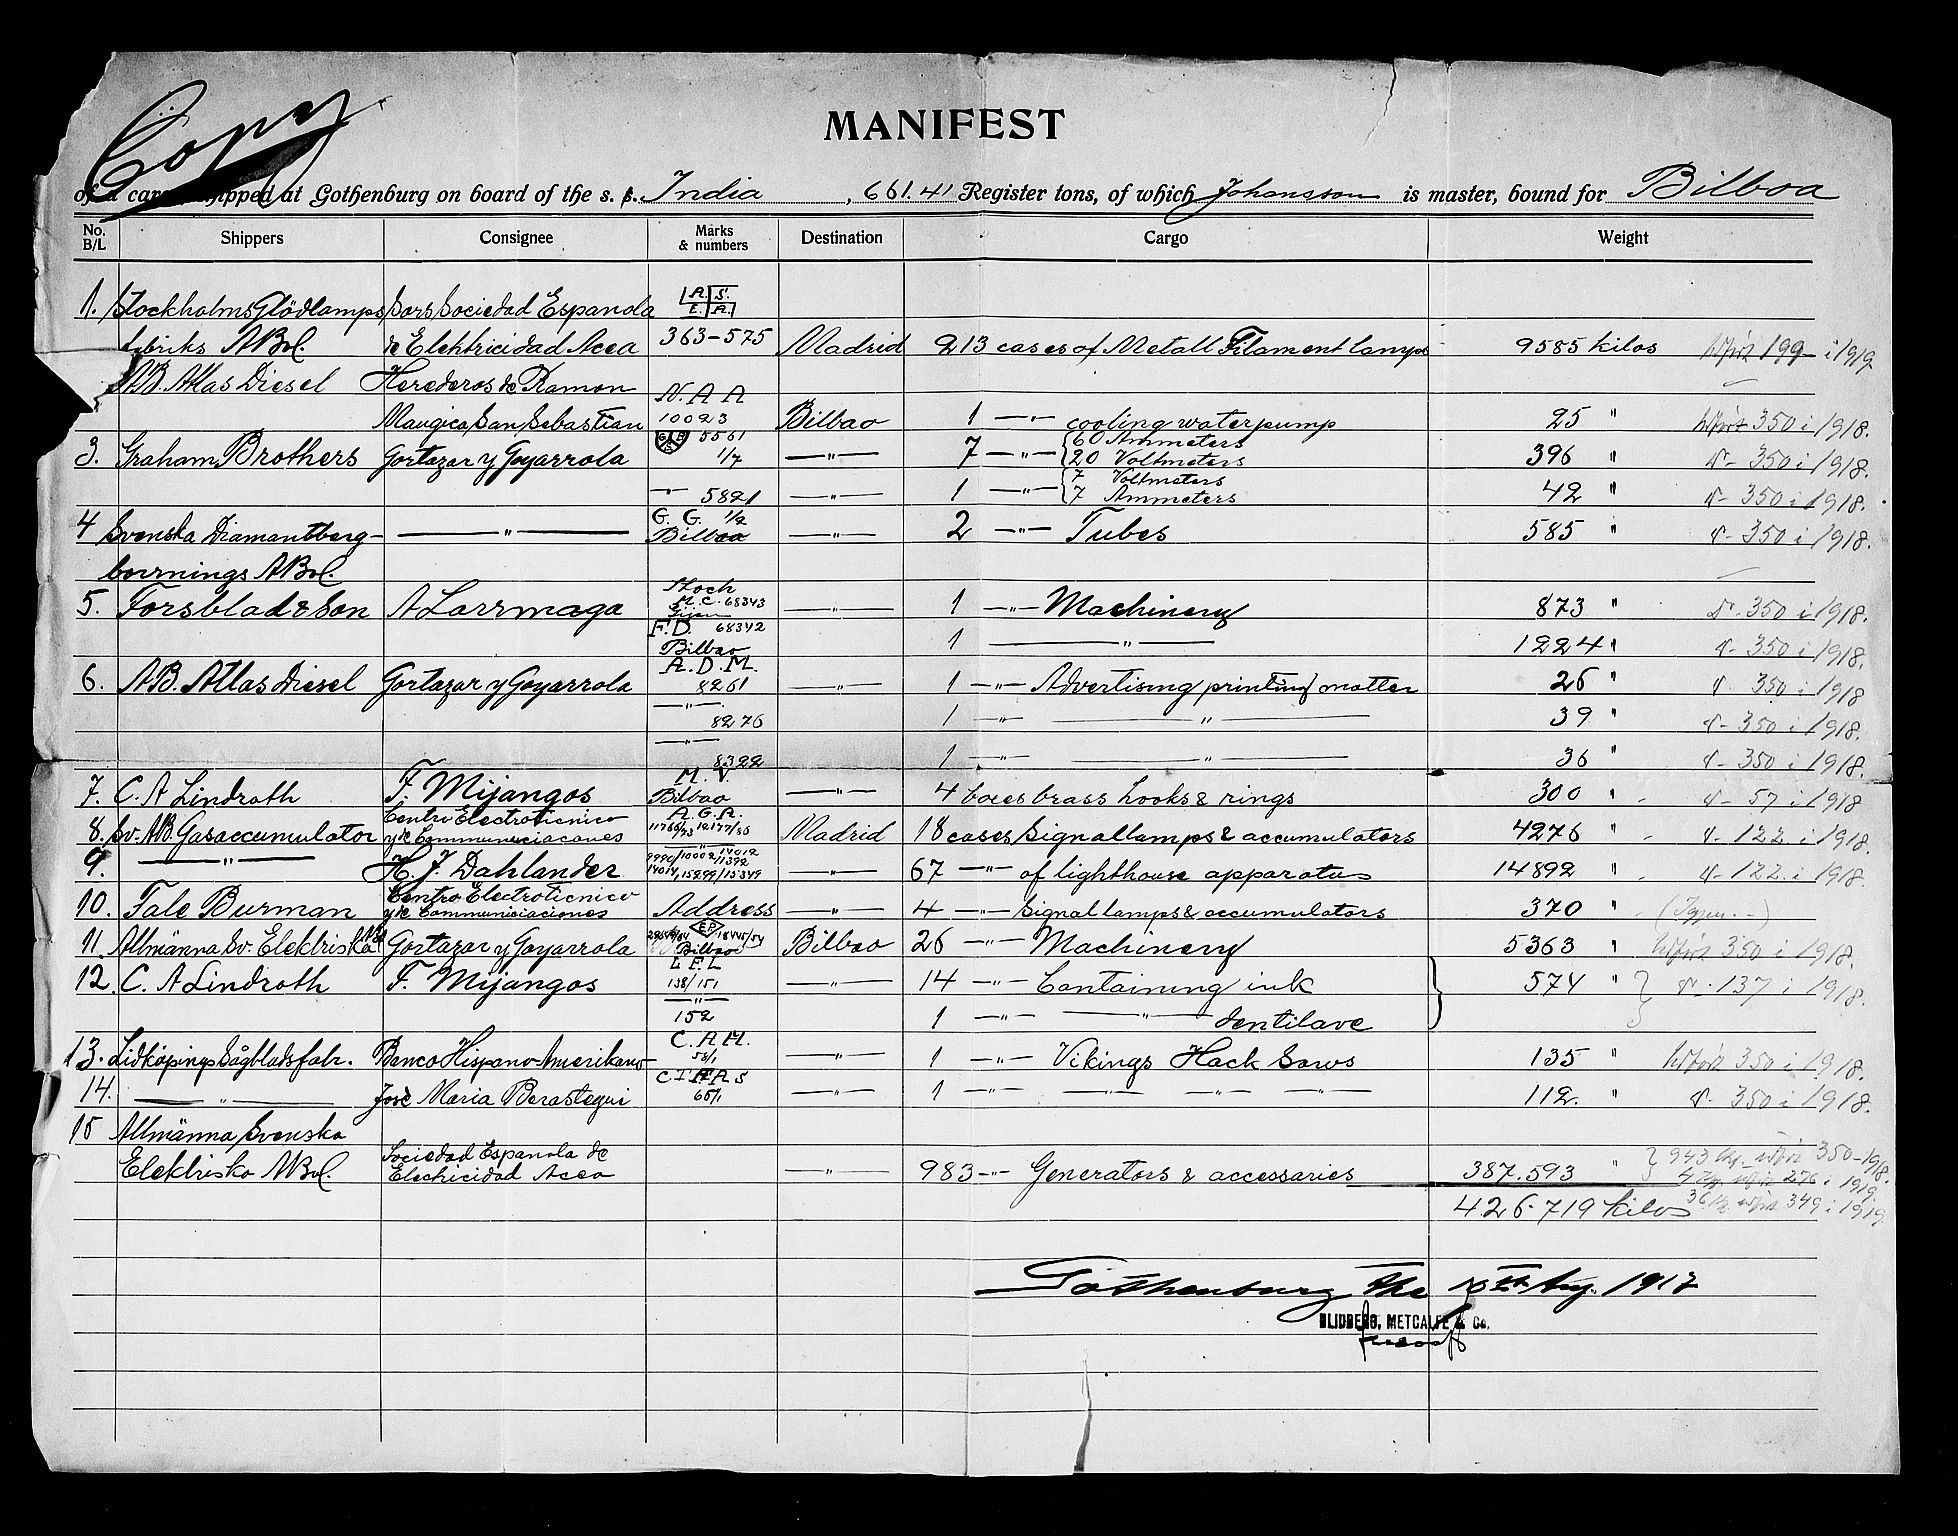 Copy
MANIFEST
of a cargo shipped at Gothenburg on board of the s. s. India, 661.41 Register tons, of which Johansson is master, bound for Bilboa
No. B/L Shippers Consignee Marks & numbers Destination Cargo Weight
1. Stockholms Glödlamps Sors Sociedad Espanola A. S. E. A.
fabriks ABol. de Elektricidad Acea 363-575 Madrid 213 cases of Metall Filament lamps 9585 kilos 199 i 1919
AB. Atlas Diesel Herederos de Ramon N. A A
Maugica San Sebastian 10023 Bilbao 1 -"- cooling waterpump 25 " 350 i 1918.
3. Graham Brothers Gortazar y Goyarrola 5561 1/7 -"- 7 -"- { 60 Ammeters 20 Voltmeters 396 " d- 350 i 1918.
-"- 5821 -"- 1 -"- { 7 Voltmeters 7 Ammeters 42 " d- 350 i 1918.
4 Svenska Diamantberg- -"- G. G. 1/2 Bilbao -"- 2 -"- Tubes 585 " d- 350 i 1918.
borrnings ABol.
5. Forsblad & Son A Larrmaga Stock M. C. 68343 -"- 1 -"- Machinery 873 " d- 350 i 1918.
F. D. 68342 Bilbao 1 -"- 1224 " d- 350 i 1918.
6. AB. Atlas Diesel Gortazar y Goyarrola A. D. M. 8261 -"- 1 -"- Advertising printing matter 26 " d- 350 i 1918
-"- 8276 1 -"- -"- 39 " d- 350 i 1918.
-"- 8322 1 -"- -"- 36 " d- 350 i 1918.
7. C. A Lindroth F. Mijangos M. V Bilbao -"- 4 boxes brass hooks & rings 300 " d- 57 i 1918
8. Sv. AB. Gasaccumulator Centro Electroticnico y de Communiciaciones A. G. A. Madrid 18 cases Signallamps & accumulators 4276 " d- 122 i 1918.
9. -"- H. J. Dahlander -"- 67 -"- of lighthouse apparatus 14892 " d- 122 i 1918.
10. Tale Burman Centro Electroticnico y de Communiciaciones Address -"- 4 -"- Signal lamps & accumulators 370 "
11. Allmänna Sv. Elektriska Gortazar y Goyarrola Bilbao Bilbao 26 -"- Machinery 5363 " 350 i 1918.
12. C. A Lindroth F. Mijangos L F. L 138/151 -"- 14 -"- Containing ink 574 " d- 137 i 1918.
-"- 152 1 -"- -"- dentilave
13. Lidköpings Sågbladsfabr. Banco Hispano Amerikano C. A. M. -"- 1 -"- Vikings Hack Saws 135 " 350 i 1918.
14. -"- José Maria Berastegui -"- 1 -"- -"- -"- 112. " d- 350 i 1918.
15 Allmänna Svenska
Elektriska ABol. Sociedad Espanola de Electricidad Acea -"- 983 -"- Generators & accessaries 387.593 " 943 350-1918.
276 i 1919.
426.719 kilos 349 i 1919.
Gothenburg the 15th Aug. 1917
BLIDBERG, METCALFE & Co.